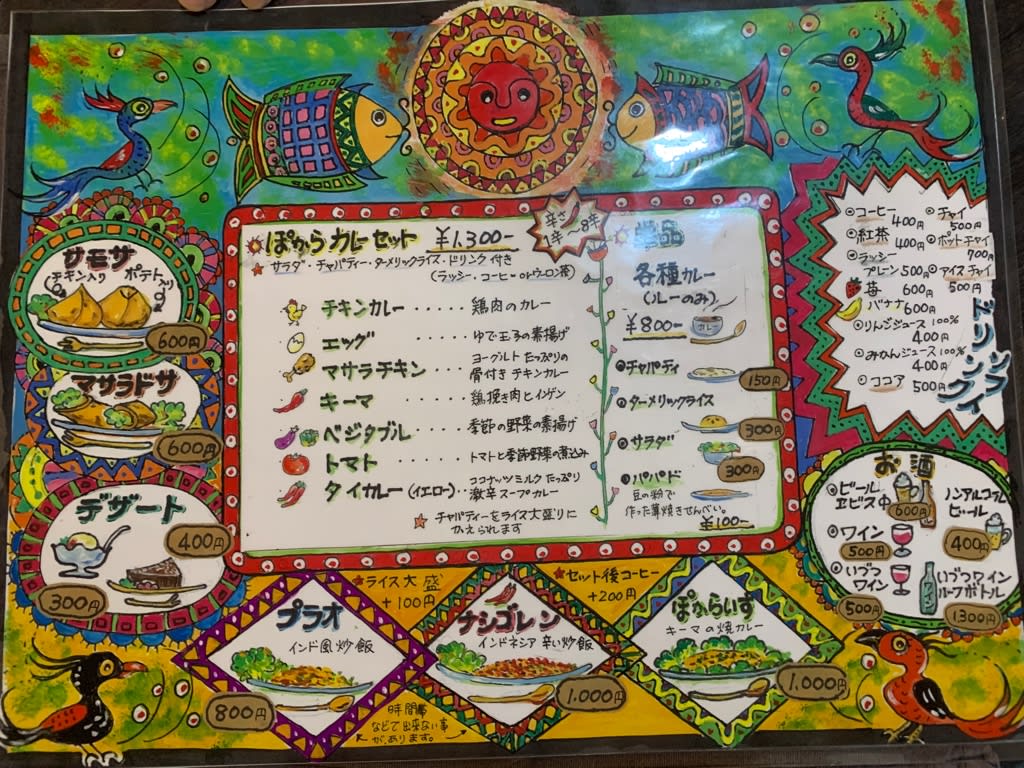 ぽからカレーセット ¥1,300-
辛さ
1辛〜8辛
★サラダ・チャパティー・ターメリックライス・ドリンク付き
(ラッシー・コーヒー orウーロン茶)
チキンカレー・・・・・鶏肉のカレー
エッグ ・・・・・ゆで玉子の素揚げ
マサラチキン ヨーグルトたっぷりの
骨付きチキンカレー
キーマ ・・・・・鶏挽き肉とインゲン
ベジタブル・・・・季節の野菜の素揚げ
トマト・・・・・・トマトと季節野菜の煮込み
タイカレー(イエロー)・・ココナッツミルクたっぷり
激辛スープカレー
☆チャパティーをライス大盛りに
かえられます
単品
各種カレー
(ルーのみ)
¥800-
カレー
チャパティ
150円
ターメリックライス
300円
サラダ
300円
パパド
豆の粉で
作った薄焼きせんべい。
¥100-
サモサ
チキン入り ポテト入り
600円
マサラドサ
600円
デザート
400円
300円
コーヒー
400円
紅茶
400円
ラッシー
プレーン500円
苺 600円
バナナ600円
りんごジュース100%
400円
みかんジュース100%
400円
ココア 500円
チャイ
500円
ポットチャイ
700円
アイスチャイ
500円
ソフト
ドリンク
お酒
ビール
ヱビス中
600円
ワイン
500円
いづつ
ワイン
500円
ノンアルコール
ビール
400円
いづつワイン
ハーフボトル
ワイン
1,300円
★ライス大盛
+100円
★セット後コーヒー
+200円
プラオ
インド風炒飯
800円
ナシゴレン
インドネシア辛い炒飯
1,000円
ぽからいす
キーマの焼カレー
1,000円
時間帯
などで出来ない事
があります。